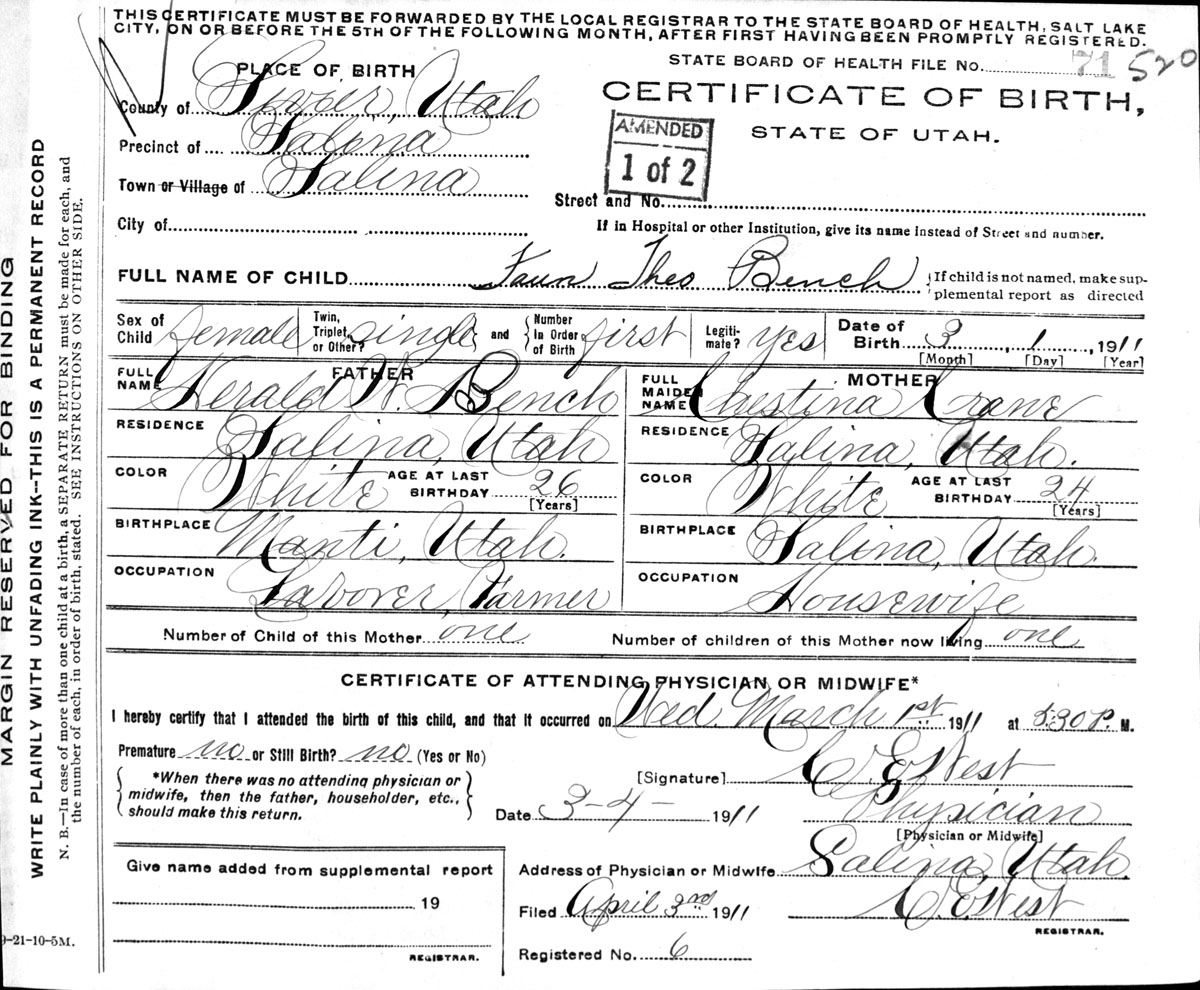 THIS CERTIFICATE MUST BE FORWARDED BY THE LOCAL REGISTRAR TO THE STATE BOARD OF HEALTH, SALT LAKE
CITY, ON OR BEFORE THE 5TH OF THE FOLLOWING MONTH, AFTER FIRST HAVING BEEN PROMPTLY REGISTERED.
STATE BOARD OF HEALTH FILE NO. 71 520
PLACE OF BIRTH
CERTIFICATE OF BIRTH,
STATE OF UTAH.
County of Sevier, Utah
AMENDED
1 of 2
Precinct of Salina
Town or Village of Salina
Street and No.
City of
If in Hospital or other Institution, give its name instead of Street and number.
FULL NAME OF CHILD Faun Theo Bench
If child is not named, make sup-
plemental report as directed
Sex of Child female Twin, Triplet, or Other? single and Number In Order of Birth first Legiti-mate? yes Date of Birth 3, 1, 1911
[Month] [Day] [Year]
FATHER
FULL NAME Herald W. Bench
RESIDENCE Salina, Utah
COLOR White AGE AT LAST BIRTHDAY 26
[Years]
BIRTHPLACE Manti, Utah.
OCCUPATION Laborer, Farmer
MOTHER
FULL MAIDEN NAME Chestina Crane
RESIDENCE Salina, Utah.
COLOR White AGE AT LAST BIRTHDAY 24
[Years]
BIRTHPLACE Salina, Utah.
OCCUPATION Housewife
Number of Child of this Mother one Number of children of this Mother now living one
CERTIFICATE OF ATTENDING PHYSICIAN OR MIDWIFE*
I hereby certify that I attended the birth of this child, and that it occurred on Wed. March 1st 1911 at 8:30 P. M.
Premature no or Still Birth? no (Yes or No)
*When there was no attending physician or
midwife, then the father, householder, etc.,
should make this return.
[Signature] C E West
Date 3-4- 1911 Physician
[Physician or Midwife]
Address of Physician or Midwife Salina, Utah.
Filed April 3rd 1911 C. E. West
REGISTRAR.
Registered No. 6
Give name added from supplemental report
19
REGISTRAR.
MARGIN RESERVED FOR BINDING
WRITE PLAINLY WITH UNFADING INK--THIS IS A PERMANENT RECORD
N. B.—In case of more than one child at a birth, a SEPARATE RETURN must be made for each, and
the number of each, in order of birth, stated. SEE INSTRUCTIONS ON OTHER SIDE.
9-21-10-5M.